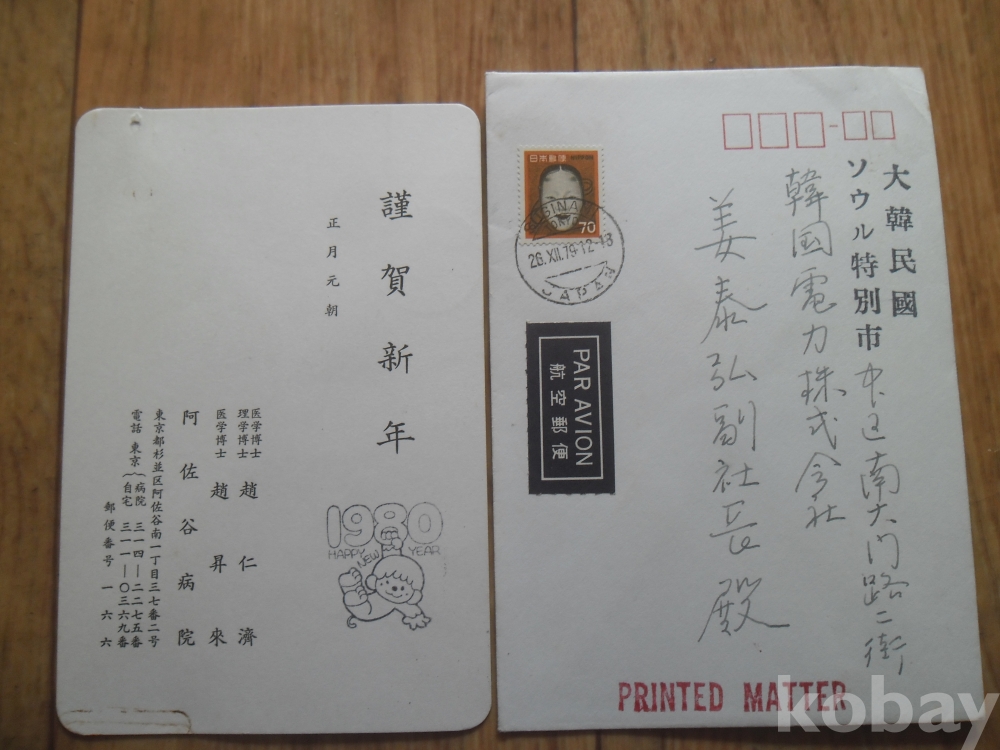 謹賀新年
正月元朝
医学博士
理学博士
趙仁濟
医学博士 趙昇來
阿佐谷病院
東京都杉並区阿佐谷南一丁目三七番二号
電話 東京(病院 三一四―二二七五番
自宅 三一一―〇三六九番
郵便番号 一六六
1980
HAPPY NEW YEAR
日本郵便
70
SUGINAMI
26.XII.79.12-18
JAPAN
PAR AVION
航空郵便
大韓民國
ソウル特別市中区南大门路二街
韓国電力株式会社
姜泰弘副社長殿
PRINTED MATTER
kobay